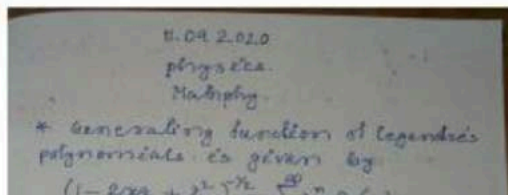 11.09.2020
physics.
Mathphy.
* Generating function of legendre's
polynomials is given by
(1-2xz + z²)